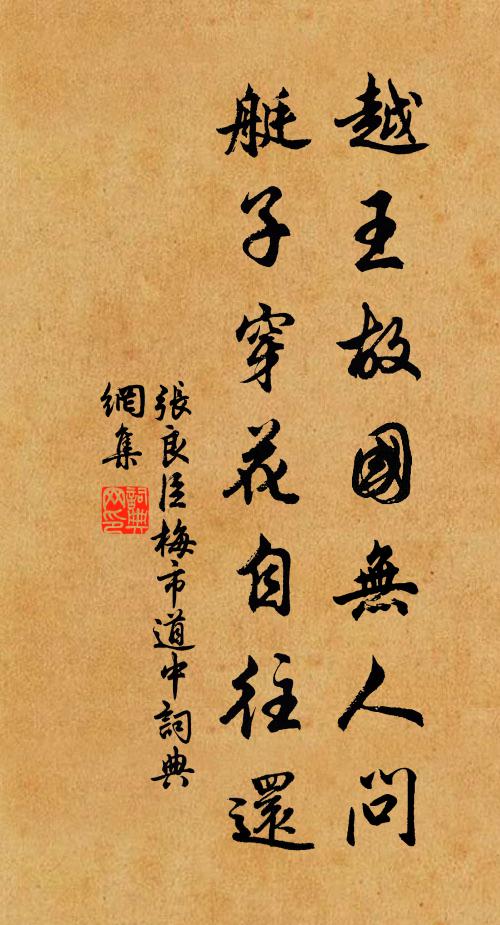 越王故國無人問
艇子穿花自往還
張良臣梅市道中詞典
網集
詞典
网印